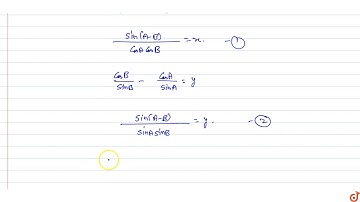 sin(A-B) / cosA cosB = x. - ①
cosB / sinB - cosA / sinA = y
sin(A-B) / sinA sinB = y. - ②